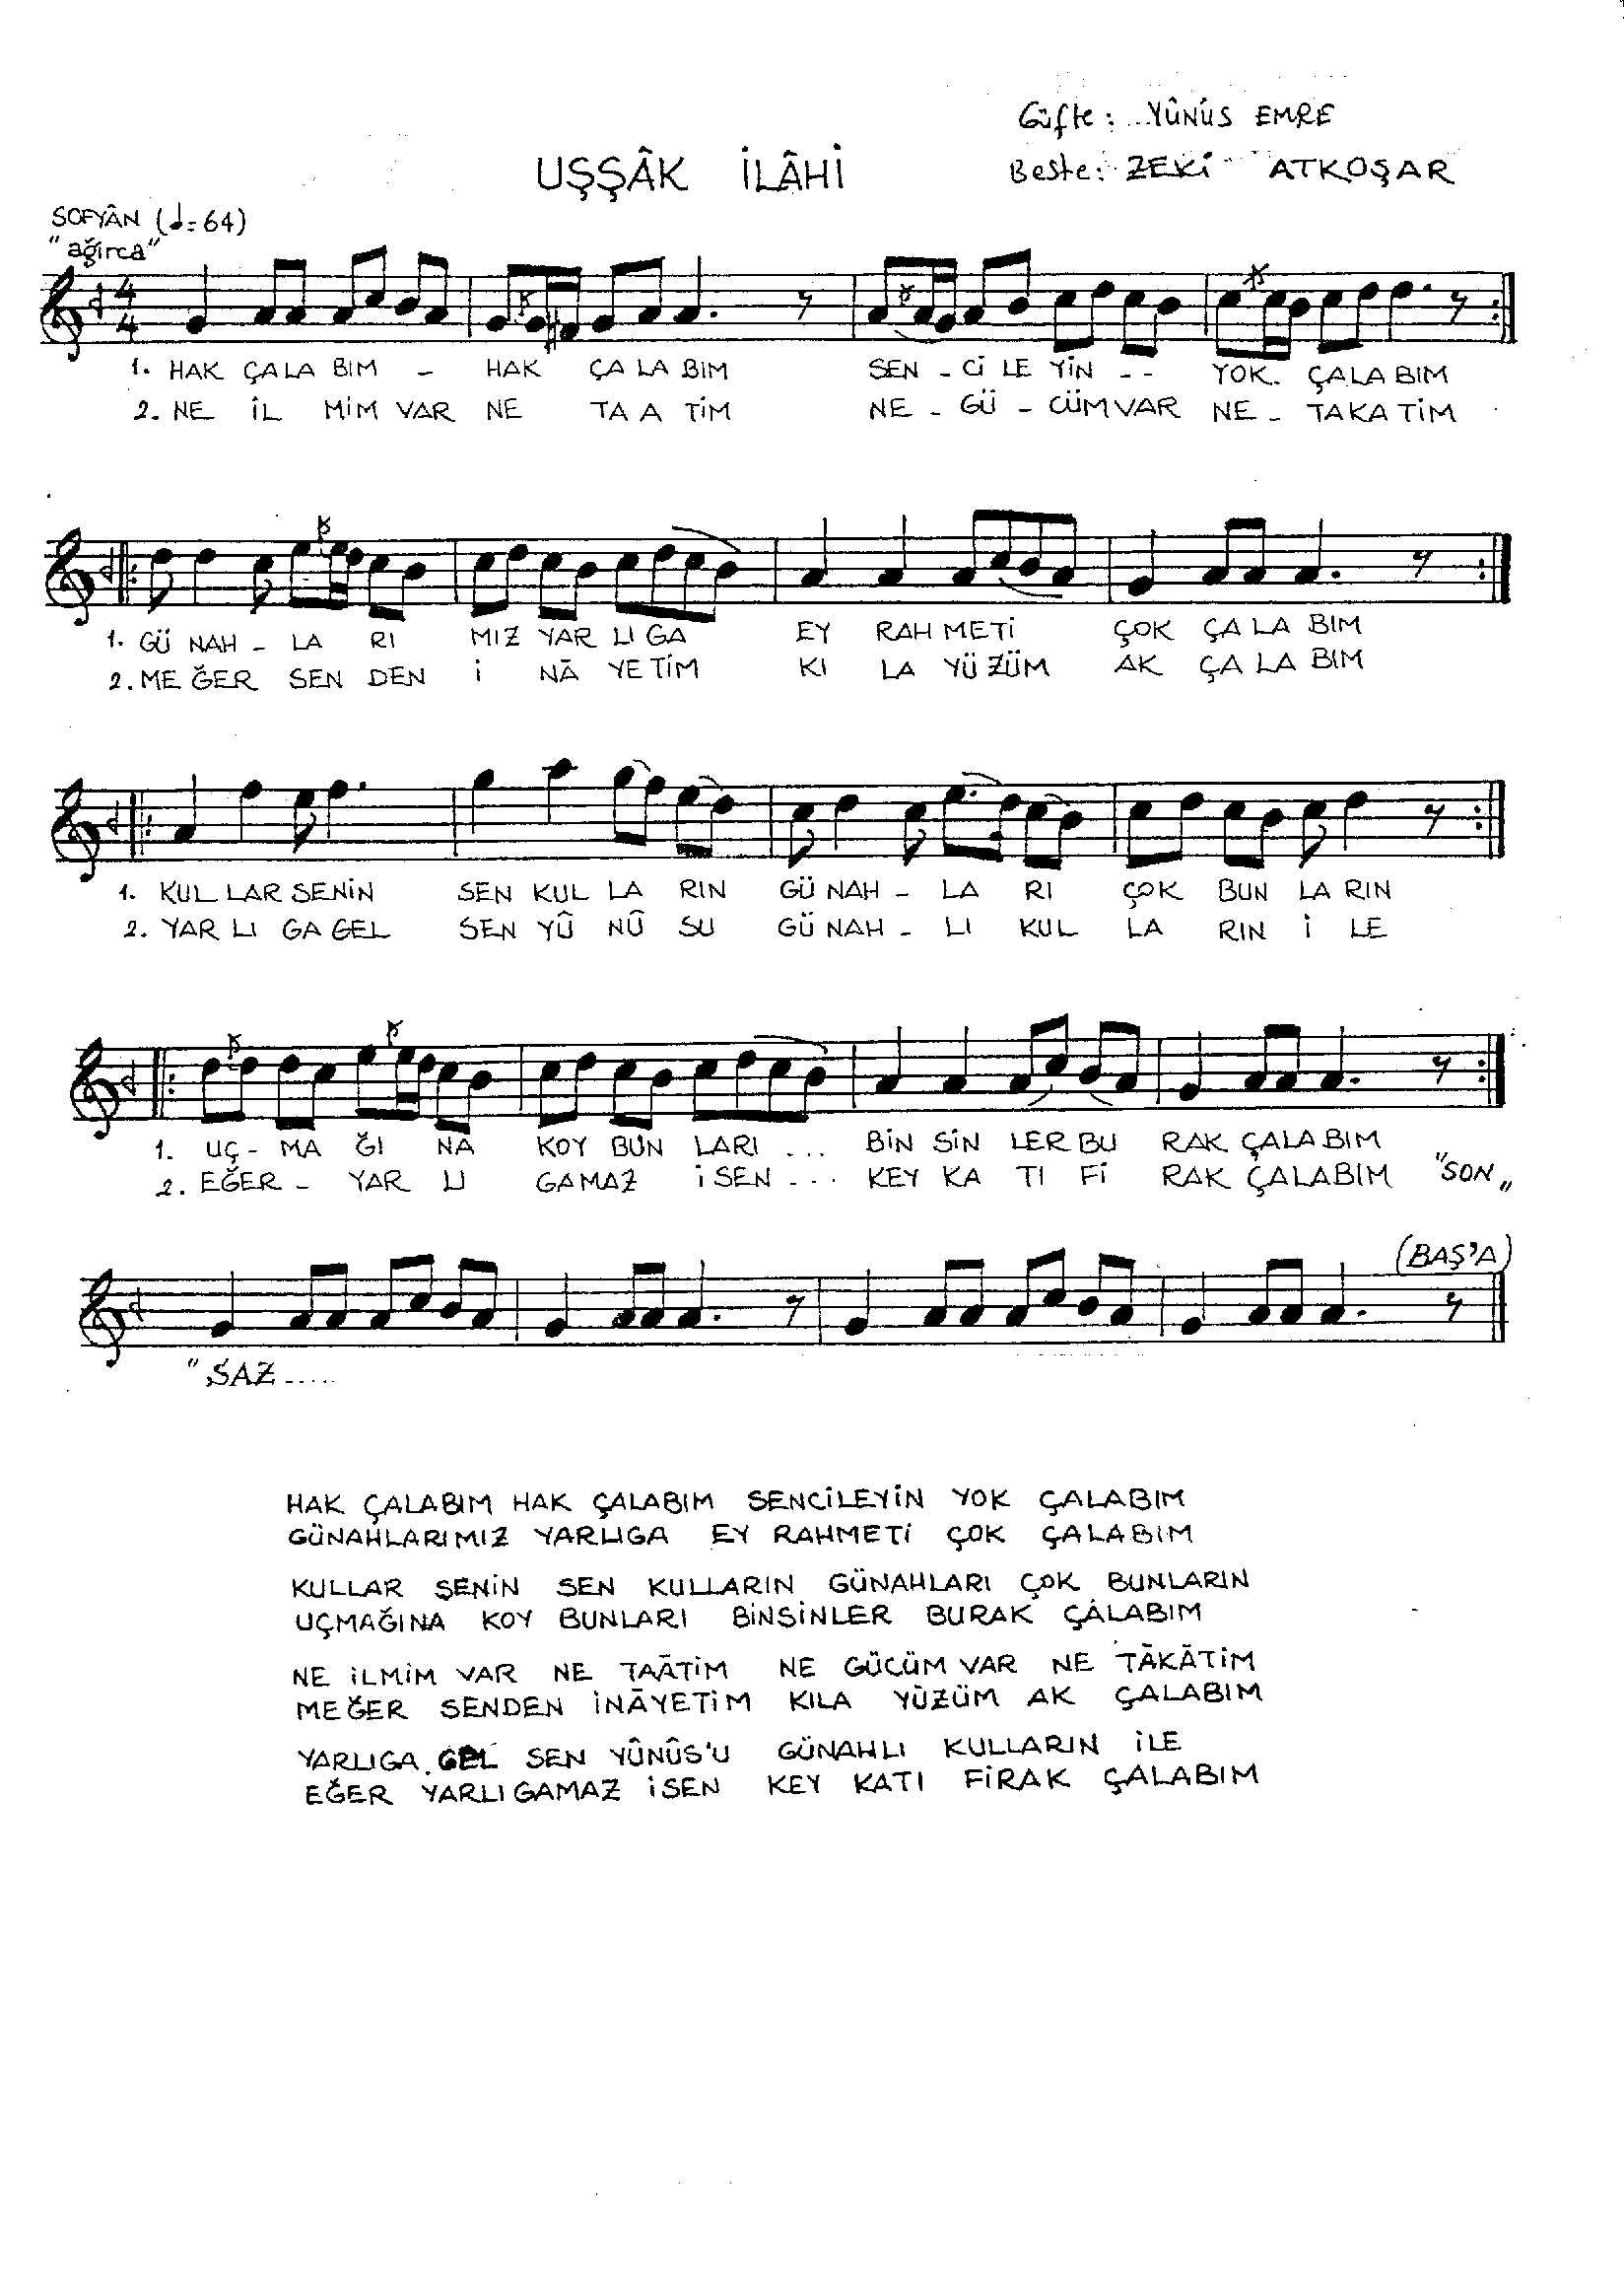 Güfte: YÛNÛS EMRE
UŞŞÂK İLÂHİ
Beste: ZEKİ ATKOŞAR
SOFYÂN (♩=64)
"ağırca"
1. HAK ÇALA BIM - HAK ÇA LA BIM SEN - Cİ LE YİN - - YOK - ÇALA BIM
2. NE İL MİM VAR NE TA A TİM NE - GÜ - CÜM VAR NE - TAKA TİM
1. GÜ NAH - LA RI MIZ YAR LI GA EY RAH METİ ÇOK ÇA LA BIM
2. ME ĞER SEN DEN İ NĀ YE TİM KI LA YÜ ZÜM AK ÇA LA BIM
1. KUL LAR SENİN SEN KUL LA RIN GÜ NAH - LA RI ÇOK BUN LA RIN
2. YAR LI GA GEL SEN YÛ NÛ SU GÜ NAH - LI KUL LA RIN İ LE
1. UÇ - MA ĞI NA KOY BUN LARI ... BİN SİN LER BU RAK ÇALA BIM
2. EĞER - YAR LI GAMAZ İSEN ... KEY KA TI Fİ RAK ÇALABIM "SON"
(BAŞ'A)
"SAZ .....
HAK ÇALABIM HAK ÇALABIM SENCİLEYİN YOK ÇALABIM
GÜNAHLARIMIZ YARLIGA EY RAHMETİ ÇOK ÇALABIM
KULLAR SENİN SEN KULLARIN GÜNAHLARI ÇOK BUNLARIN
UÇMAĞINA KOY BUNLARI BİNSİNLER BURAK ÇALABIM
NE İLMİM VAR NE TAĀTİM NE GÜCÜM VAR NE TĀKĀTİM
MEĞER SENDEN İNĀYETİM KILA YÜZÜM AK ÇALABIM
YARLIGA GEL SEN YÛNÛS'U GÜNAHLI KULLARIN İLE
EĞER YARLIGAMAZ İSEN KEY KATI FİRAK ÇALABIM